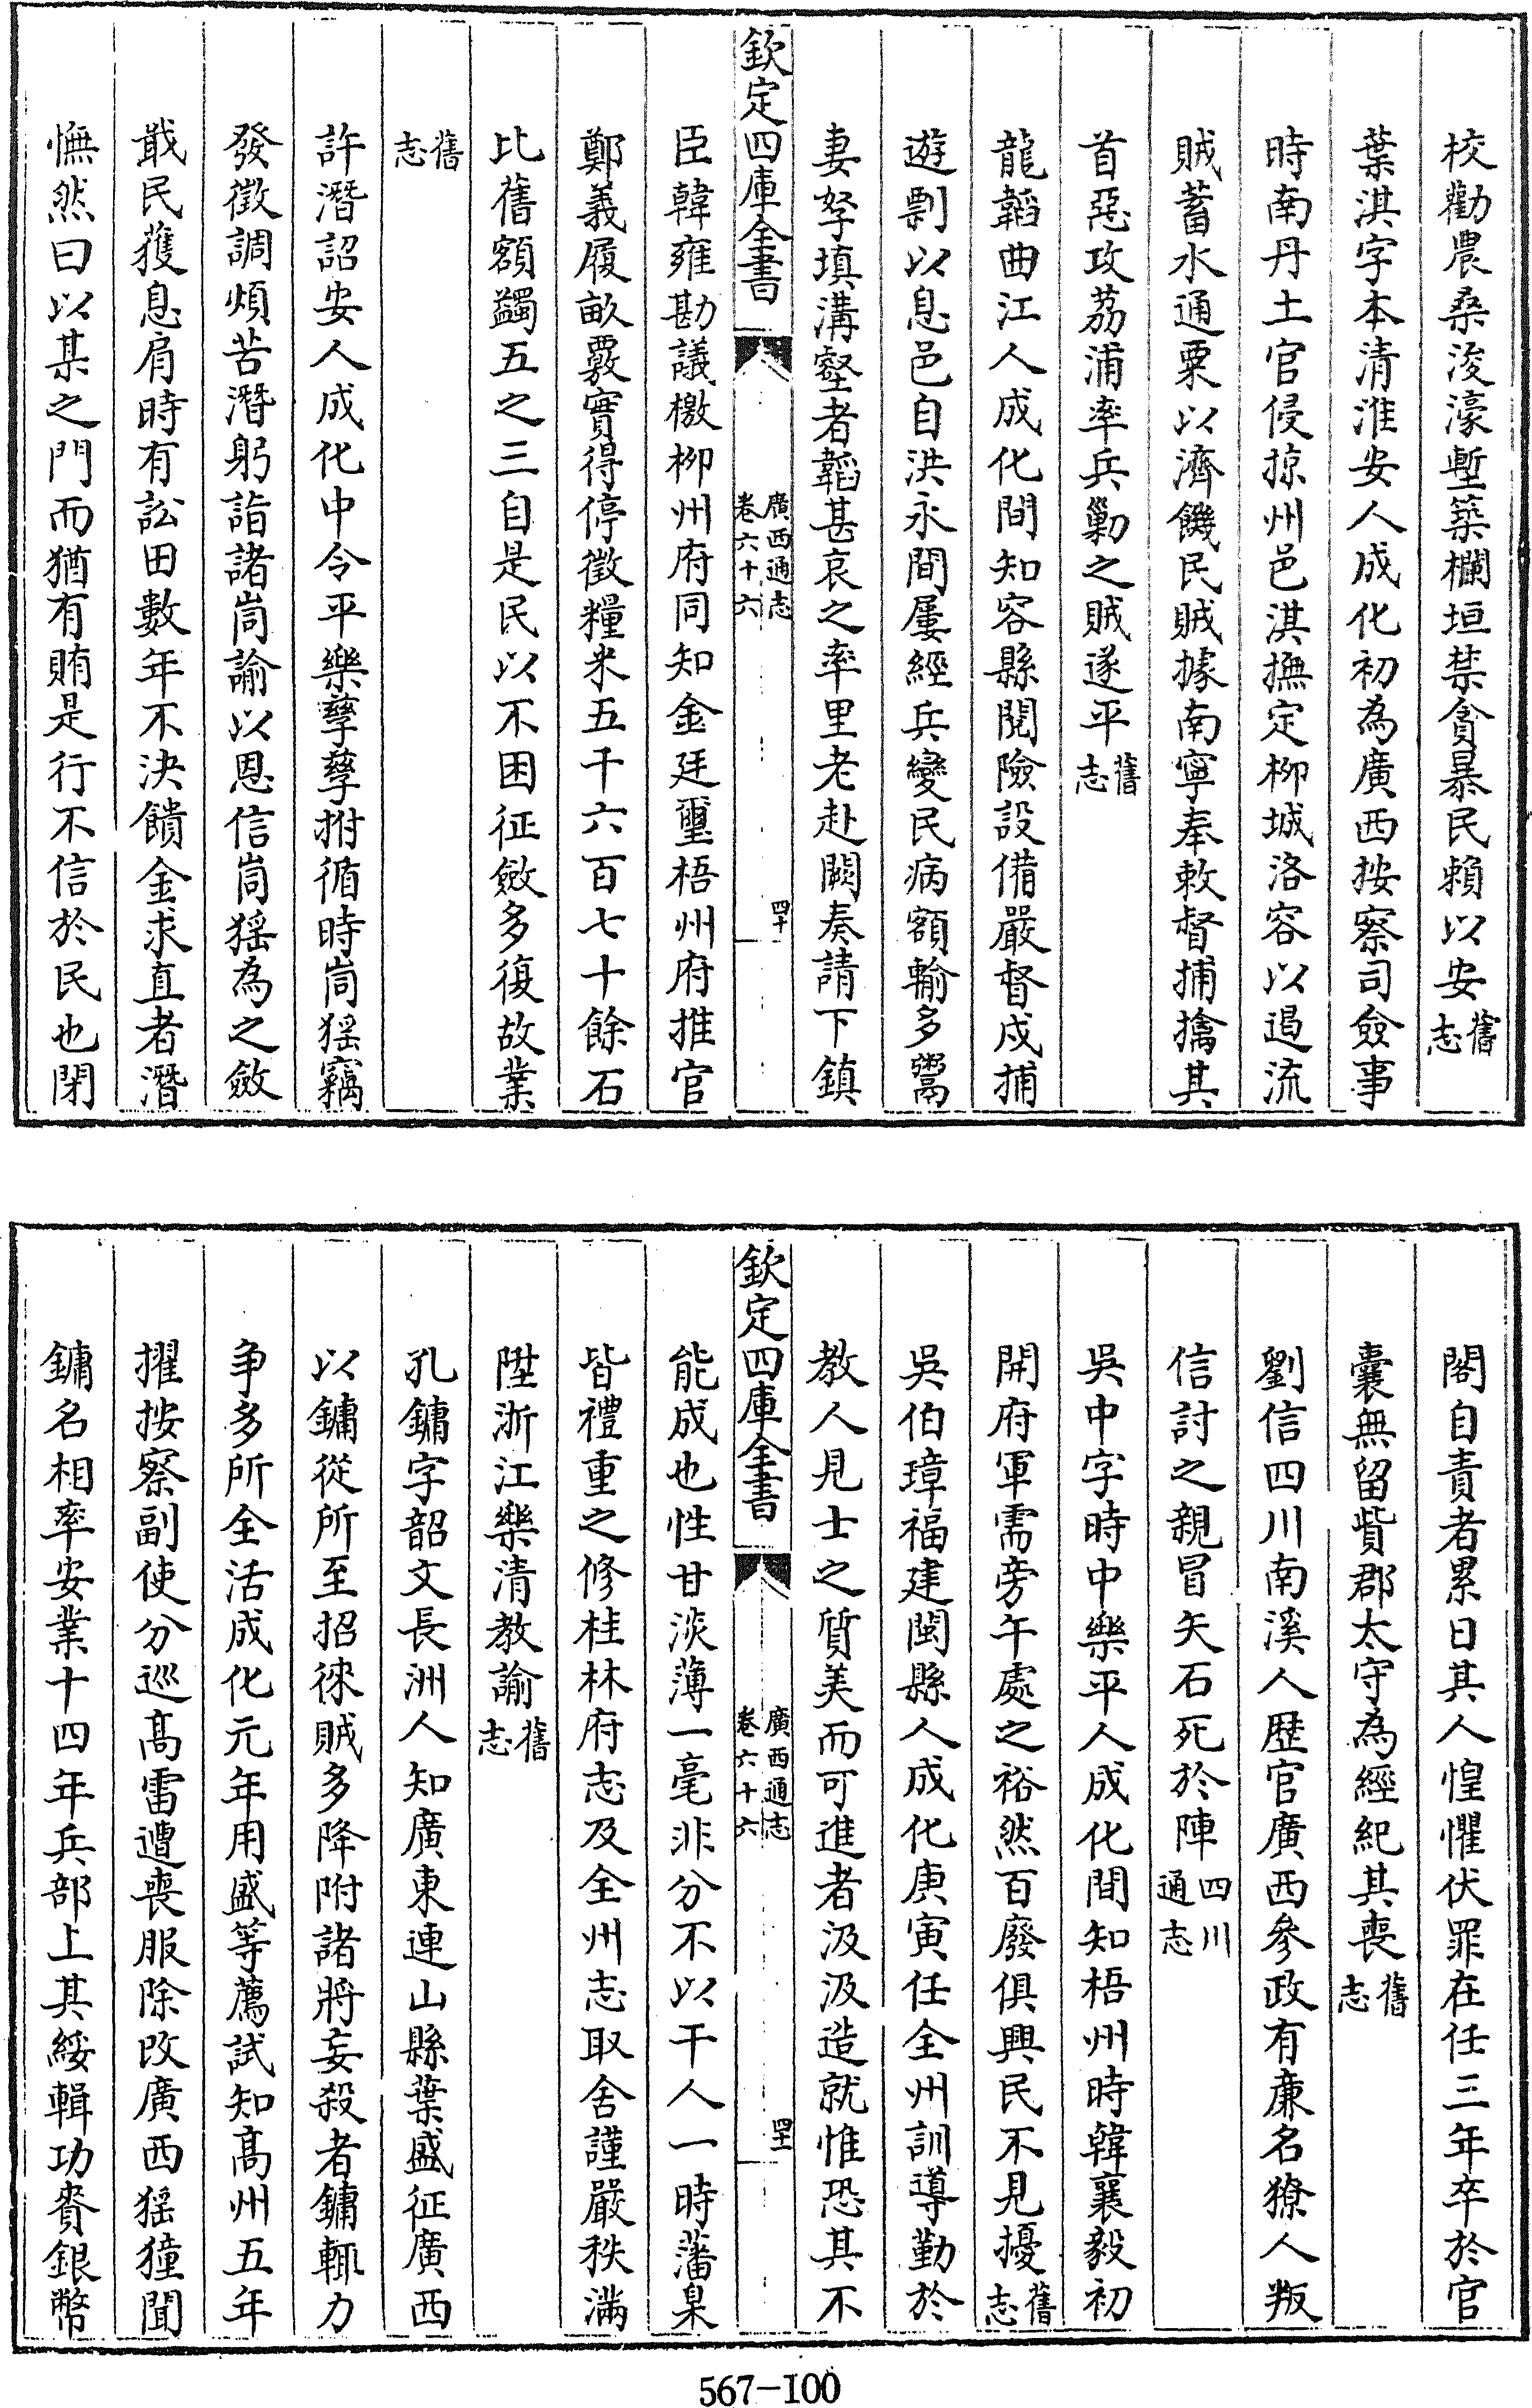 校勸農桑浚濠塹築欄垣禁貪暴民賴以安舊志
葉淇字本清淮安人成化初為廣西按察司僉事
時南丹土官侵掠州邑淇撫定柳城洛容以遏流
賊蓄水通粟以濟饑民賊據南寧奉敕督捕擒其
首惡攻荔浦率兵勦之賊遂平舊志
龍韜曲江人成化間知容縣閱險設備嚴督戍捕
遊剽以息邑自洪永間屢經兵變民病額輸多鬻
妻孥填溝壑者韜甚哀之率里老赴闕奏請下鎮
欽定四庫全書
廣西通志
卷六十六
四十
臣韓雍勘議檄柳州府同知金廷璽梧州府推官
鄭義履畝覈實得停徵糧米五千六百七十餘石
比舊額蠲五之三自是民以不困征斂多復故業
舊志
許潛詔安人成化中令平樂孳孳拊循時峝猺竊
發徵調煩苦潛躬詣諸峝諭以恩信峝猺為之斂
戢民獲息肩時有訟田數年不決饋金求直者潛
憮然曰以某之門而猶有賄是行不信於民也閉
閣自責者累日其人惶懼伏罪在任三年卒於官
囊無留貲郡太守為經紀其喪舊志
劉信四川南溪人歴官廣西參政有廉名獠人叛
信討之親冒矢石死於陣四川通志
吳中字時中樂平人成化間知梧州時韓襄毅初
開府軍需旁午處之裕然百廢俱興民不見擾舊志
吳伯璋福建閩縣人成化庚寅任全州訓導勤於
教人見士之質美而可進者汲汲造就惟恐其不
欽定四庫全書
廣西通志
卷六十六
四十一
能成也性甘淡薄一毫非分不以干人一時藩臬
皆禮重之修桂林府志及全州志取舍謹嚴秩滿
陞浙江樂清教諭舊志
孔鏞字韶文長洲人知廣東連山縣葉盛征廣西
以鏞從所至招徠賊多降附諸將妄殺者鏞輒力
争多所全活成化元年用盛等薦試知髙州五年
擢按察副使分巡髙雷遭喪服除改廣西猺獞聞
鏞名相率安業十四年兵部上其綏輯功賚銀幣
567-100